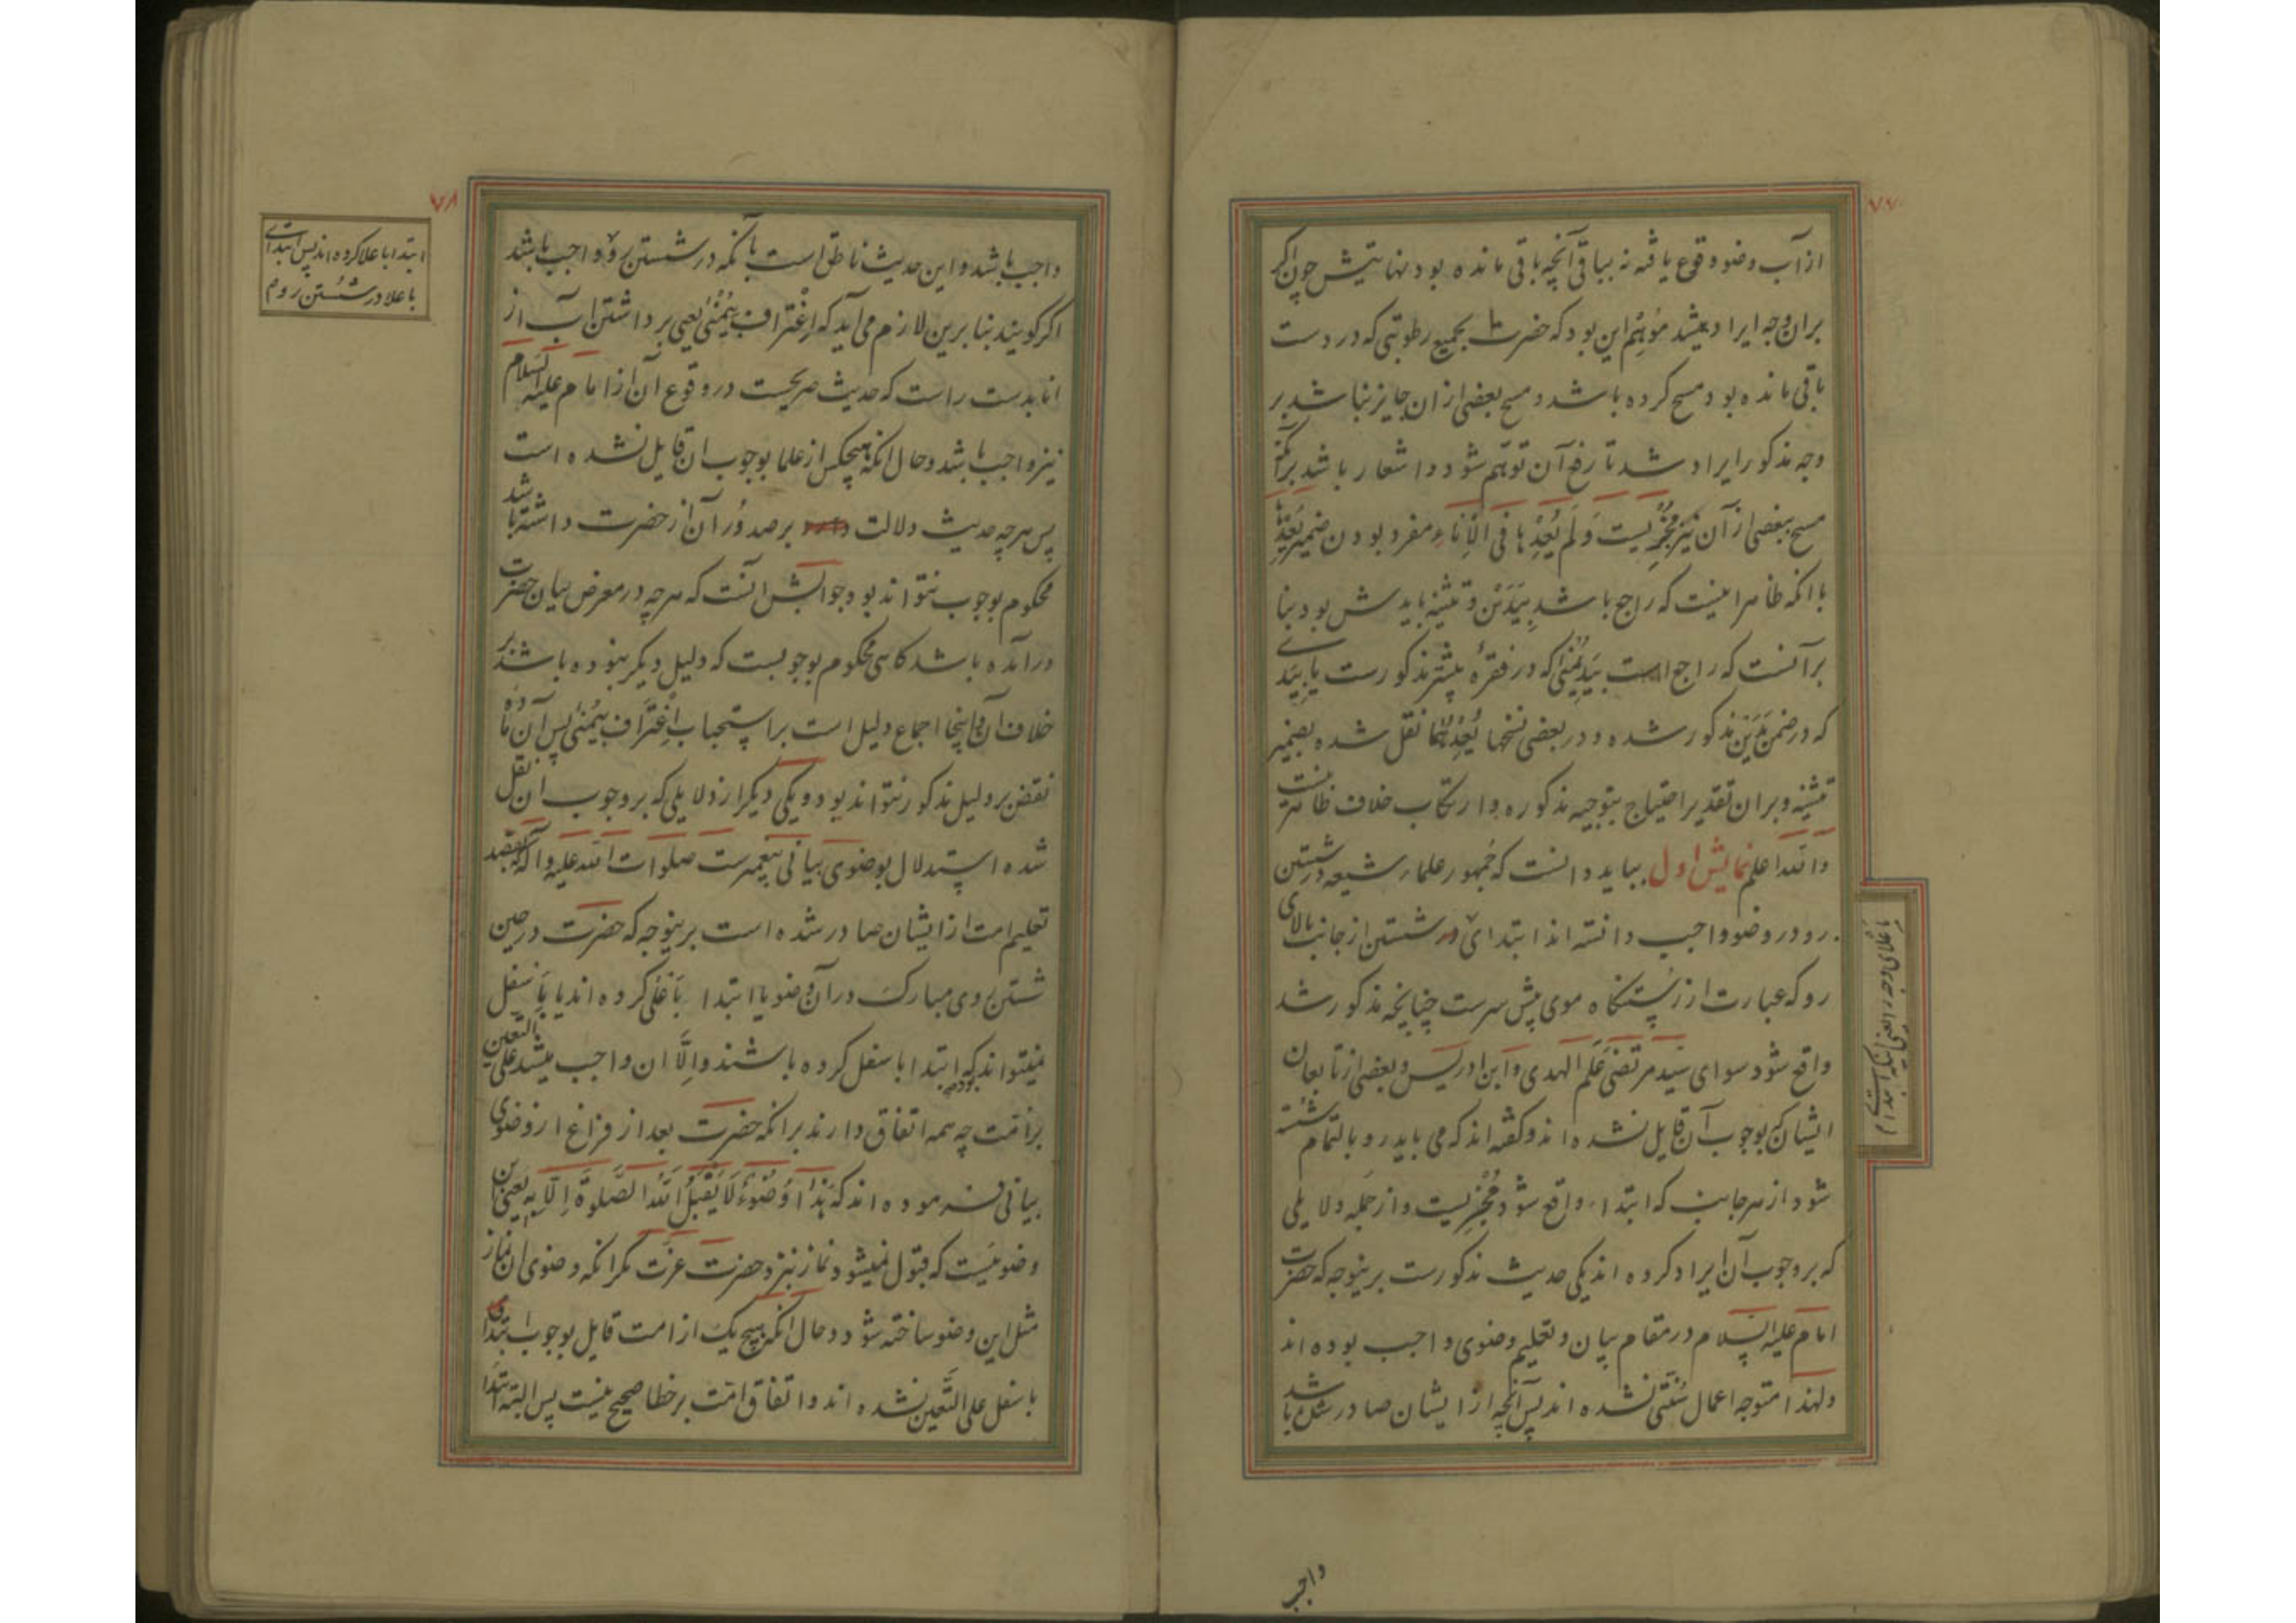 ۷۷
از آب وضو وقوع یافته نه بباقی آنچه باقی مانده بود نهایتش چون اگر
بران وجه ایراد میشد موُهِم این بود که حضرت تا بجمیع رطوبتی که در دست
باقی مانده بود مسح کرده باشد و مسح بعضی از ان جایز نباشد بر
وجه مذکور ایراد شد تا رفع آن توهّم شود و اشعار باشد برآنکه
مسح ببعضی از آن نیز مُجْزِیست وَلَم یُعِدْها فی الاِناءِ مفرد بودن ضمیر یُعِدْها
با انکه ظاهرا نیست که راجع باشد بِیَدَیْن و تثنیه بایدش بود بنا
برآنست که راجع است بِیَدِ یُمْنیٰ که در فقرهٔ پیشتر مذکورست یا بِیَدی
که در ضمن یَدَیْن مذکور شده و در بعضی نسخها یُعِدْهُما نقل شده بضمیر
تثنیه و بران تقدیر احتیاج بتوجیه مذکوره و ارتکاب خلاف ظاهر نیست
والله اعلم نمایش اول بباید دانست که جُمهور علماء شیعه در شستن
رو در وضو واجب دانسته اند ابتدای در شستن از جانب بالای
رو که عبارت از رُستنگاه موی پیش سرست چنانچه مذکور شد
واقع شود سوای سَیّد مرتضیٰ عَلَم الهدی وابن ادریس و بعضی از تابعان
ایشان که بوجوب آن قایل نشده اند و گفته اند که می باید رو بالتمام شسته
شود از هر جانب که ابتداء واقع شود مُجْزِیست و از جمله دلایلی
که بر وجوب آن ایراد کرده اند یکی حدیث مذکورست برینوجه که حضرت
امام علیه السلام در مقام بیان و تعلیم وضوی واجب بوده اند
ولهذا متوجه اعمال سُنّتی نشده اند پس آنچه از ایشان صادر شده باشد
واجب
۷۸
واجب باشد و این حدیث ناطق است بآنکه در شستن رو واجب باشد
اگر گویند بنا برین لازم می آید که اِغْتراف بِیُمْنیٰ یعنی برداشتن آب از
انا بدست راست که حدیث صریحست در وقوع آن از امام علیه السلام
نیز واجب باشد و حال انکه هیچکس از علما بوجوب ان قایل نشده است
پس هرچه حدیث دلالت بر صدور آن از حضرت داشته باشد
محکوم بوجوب نتواند بود جوابش آنست که هرچه در معرض بیان حضرت
درآمده باشد گاهی محکوم بوجوبست که دلیل دیگر نبوده باشد بر
خلاف آن و اینجا اجماع دلیل است بر استحباب اِغْتَراف بِیُمْنیٰ پس آن ماده
نقض بر دلیل مذکور نتواند بود و یکی دیگر از دلایلی که بر وجوب ان نقل
شده استدلال بوضوی بیانی پیغمبرست صلوات الله علیه واله که بقصد
تعلیم امت از ایشان صادر شده است برینوجه که حضرت در حین
شستن روی مبارک در آن وضو یا ابتدا بَاَعْلیٰ کرده اند یا بِاَسفل
نمیتواند که ابتدا باسفل کرده باشند واِلّا ان واجب میشد علی التعین
بر امّت چه همه اتفاق دارند بر انکه حضرت بعد از فراغ از وضوی
بیانی فرموده اند که هٰذَا وُضُوءٌ لَا یَقْبَلُ اللّهُ الصَّلوةَ اِلّا بِهِ یعنی این
وضوئیست که قبول نمیشود نماز نزد حضرت عزّت مگر انکه وضوی ان نماز
مثل این وضو ساخته شود و حال انکه هیچ یک از امت قایل بوجوب ابتدای
باسفل علی التَّعین نشده اند و اتفاق امّت بر خطا صحیح نیست پس البته ابتدا
ابتدا باعلا کرده اند پس ابتدای
باعلا در شُستن رو م